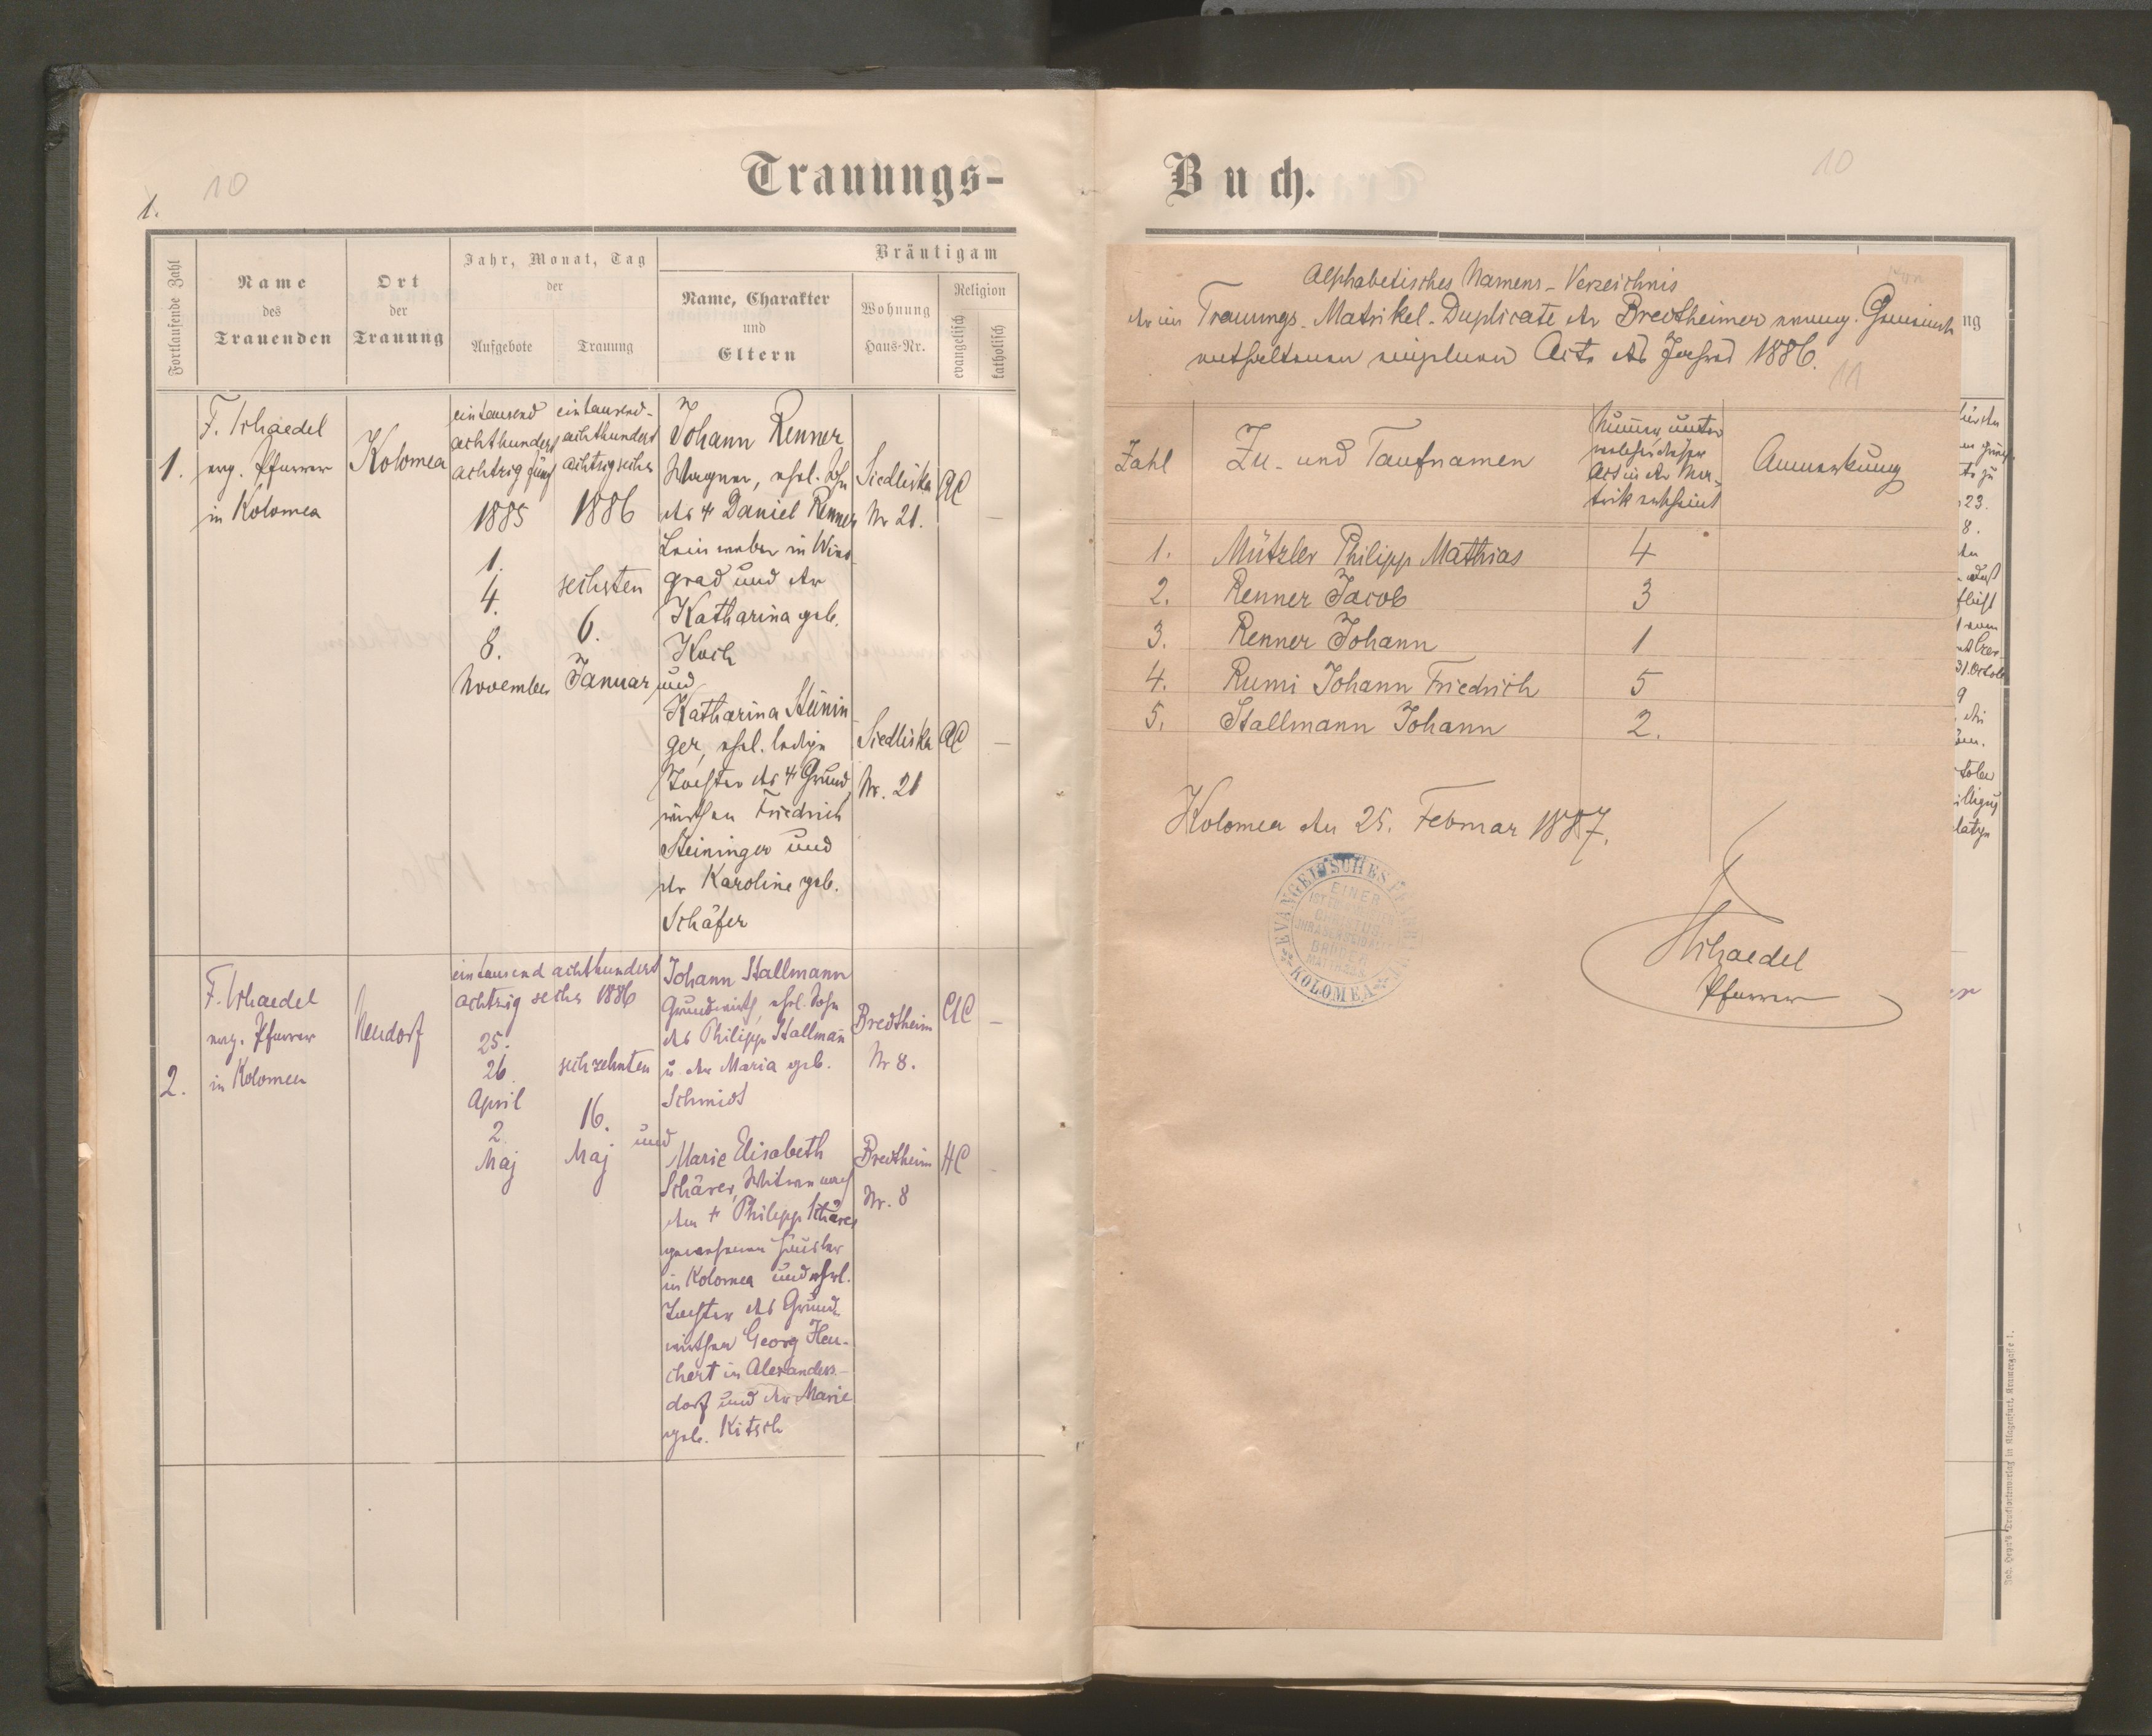 1.
10
Trauungs-
Fortlaufende Zahl
Name
des
Trauenden
Ort
der
Trauung
Jahr, Monat, Tag
der
Aufgebote
Trauung
Bräutigam
Name, Charakter
und
Eltern
Wohnung
Haus-Nr.
Religion
evangelisch
katholisch
1.
F. Schaedel
evg. Pfarrer
in Kolomea
Kolomea
eintausend
achthundert
achtzig fünf
1885
1.
4.
8.
November
eintausend-
achthundert
achtzig sechs
1886
sechsten
6.
Januar
Johann Renner
Wagner, ehel. Sohn
des † Daniel Renner
Leinweber in Wino-
grad und der
Katharina geb.
Koch
und
Katharina Steinin-
ger, ehel. ledige
Tochter des † Grund-
wirthen Friedrich
Steininger und
der Karoline geb.
Schäfer
Siedliska
Nr 21.
AC
—
Siedliska
Nr. 21
AC
—
2.
F. Schaedel
evg. Pfarrer
in Kolomea
Neudorf
eintausend achthundert
achtzig sechs 1886
25.
26.
April
2.
Maj
sechzehnten
16.
Maj
Johann Stallmann
Grundwirth, ehel. Sohn
des Philipp Stallmañ
u. der Maria geb.
Schmidt
und
Marie Elisabeth
Schärer, Witwe nach
dem † Philipp Schärer
gewesenen Häusler
in Kolomea und ehel.
Tochter des Grund-
wirthen Georg Heu-
chert in Alexanders-
dorf und der Marie
geb. Kitsch
Bredtheim
Nr 8.
AC
—
Bredtheim
Nr. 8
HC
Buch.
10
Alphabetisches Namens-Verzeichnis
der im Trauungs-Matrikel-Duplicate der Bredtheimer evang. Gemeinde
enthaltenen einzelnen Acte des Jahres 1886.
11
Zahl
Zu- und Taufnamen
Num̄er, unter
welcher dieser
Act in der Ma-
trik erscheint
Anmerkung
1. Mützler Philipp Mathias 4
2. Renner Jacob 3
3. Renner Johann 1
4. Rumi Johann Friedrich 5
5. Stallmann Johann 2.
Kolomea den 25. Februar 1887.
EVANGELISCHES
KOLOMEA
EINER
IST
CHRISTUS
BRÜDER
Schaedel
Pfarrer
Joh. Heyn's Drucksortenverlag in Klagenfurt, Kramergasse 1.